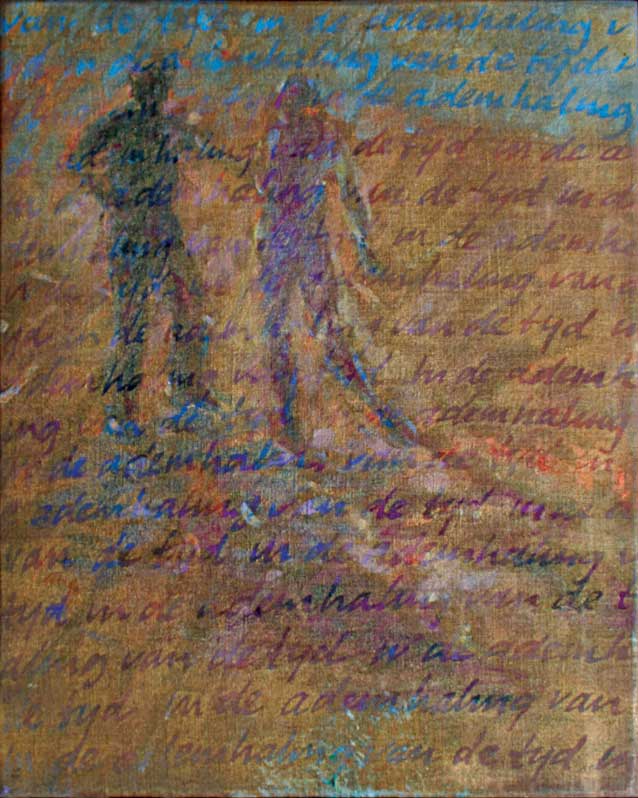 van de tijd in de ademhaling v
tijd in de ademhaling van de tijd i
in de ademhaling
ademhaling van de tijd in de a
in de ademhaling van de tijd in de
ademhaling van de tijd in de ademha
tijd in de ademhaling van d
tijd in de ademhaling van de tijd in
ademhaling van de tijd in de ademh
ing van de tijd in de ademhaling
in de ademhaling van de tijd in
ademhaling van de tijd in de
van de tijd in de ademhaling v
tijd in de ademhaling van de t
aling van de tijd in de ademh
de tijd in de ademhaling van
in de ademhaling van de tijd in